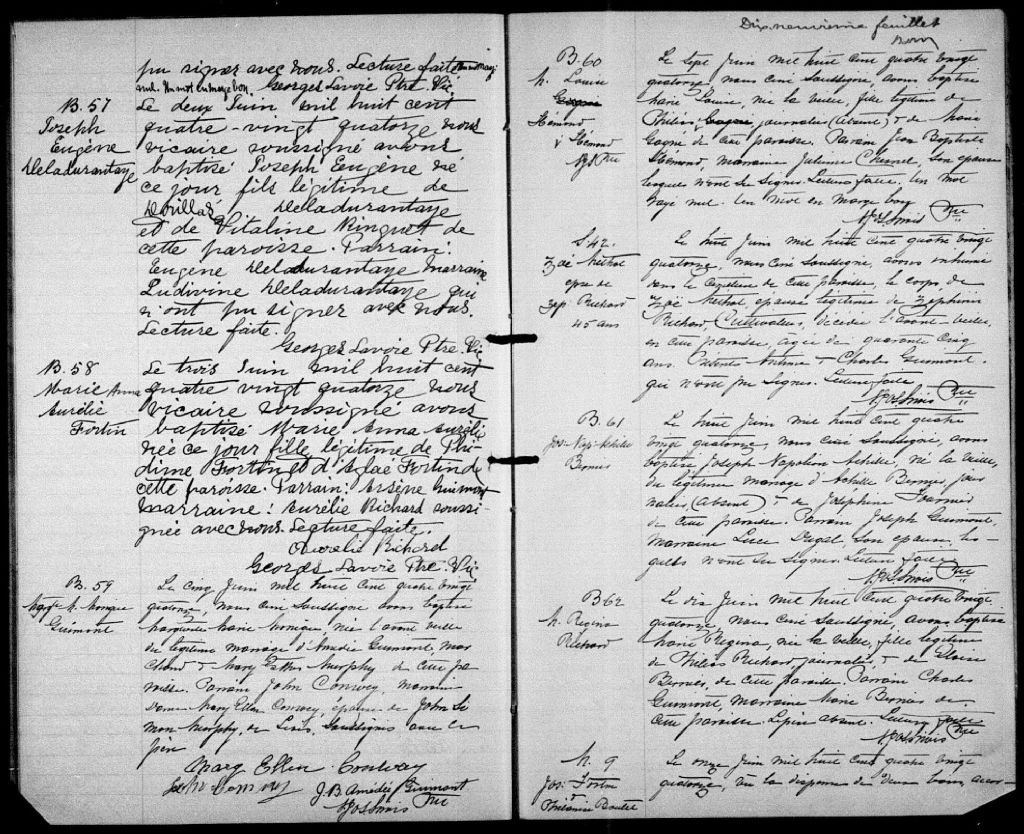 pu signer avec nous. Lecture faite
Georges Lavoie Ptre. Vic
B. 57
Joseph
Eugène
Deladurantaye
Le deux Juin mil huit cent
quatre-vingt quatorze nous
vicaire soussigné avons
baptisé Joseph Eugène né
ce jour fils légitime de
Deladurantaye
et de Vitaline Ringuet de
cette paroisse. Parrain:
Eugène Deladurantaye Marraine
Ludivine Deladurantaye qui
n'ont pu signer avec nous.
Lecture faite.
Georges Lavoie Ptre. Vic
B. 58
Marie Anna
Aurélie
Fortin
Le trois Juin mil huit cent
quatre vingt quatorze nous
vicaire soussigné avons
baptisé Marie Anna Aurélie
née ce jour fille légitime de Phi-
dime Fortin et d'Aglaé Fortin de
cette paroisse. Parrain: Arsène Guimont
Marraine: Aurélie Richard soussi-
gnée avec nous. Lecture faite.
Aurélie Richard
Georges Lavoie Ptre. Vic
B. 59
M. Monique
Guimont
Le cinq Juin mil huit cent quatre vingt
quatorze, nous curé soussigné avons baptisé
Marie Monique née l'avant veille
du légitime mariage d'Amédée Guimont, mar
chand & Mary Esther Murphy de cette pa
roisse. Parrain John Conway, marraine
Dame Mary Ellen Conway épouse de John Si
mon Murphy, de Lévis, soussignés avec le
père
Mary Ellen Conway
John Conway J. B Amédée Guimont
Ptre
Dix neuvième feuillet
B. 60
M. Louise
Hémond
Le sept Juin mil huit cent quatre vingt
quatorze, nous curé soussigné, avons baptisé
Marie Louise, née la veille, fille légitime de
journalier (absent) & de Marie
Gagné de cette paroisse. Parrain Jean Baptiste
Hémond, marraine Julienne Chrétien, son épouse
lesquels n'ont su signer. Lecture faite. Un mot
rayé nul. Un mot en marge bon
Ptre
S 42.
Zoé Méthot
épse de
Zép Richard
45 ans
Le huit Juin mil huit cent quatre vingt
quatorze, nous curé soussigné, avons inhumé
dans le cimetière de cette paroisse, le corps de
Zoé Méthot épouse légitime de Zéphirin
Richard, cultivateur, décédée l'avant-veille,
en cette paroisse, agée de quarante cinq
ans. Présents Antoine & Charles Guimont.
qui n'ont pu signer. Lecture faite
Ptre
B. 61
Jos. Nap. Achille
Bernier
Le huit Juin mil huit cent quatre
vingt quatorze, nous curé soussigné, avons
baptisé Joseph Napoléon Achille, né la veille,
du légitime mariage d'Achille Bernier, jour
nalier, (absent) & de Joséphine Fournier
de cette paroisse. Parrain Joseph Guimont,
Marraine Luce Dugal, son épouse, les-
quels n'ont su signer. Lecture faite
Ptre
B 62
M. Regina
Richard
Le dix Juin mil huit cent quatre vingt
quatorze, nous curé soussigné, avons baptisé
Marie Regina, née la veille, fille légitime
de Philéas Richard, journalier, & de
Bernier, de cette paroisse. Parrain Charles
Guimont, marraine Marie Bernier de
cette paroisse. Le père absent. Lecture faite
Ptre
M. 9
Jos. Fortin
&
Boulet
Le onze Juin mil huit cent quatre vingt
quatorze, vu la dispense de deux bans, accor-